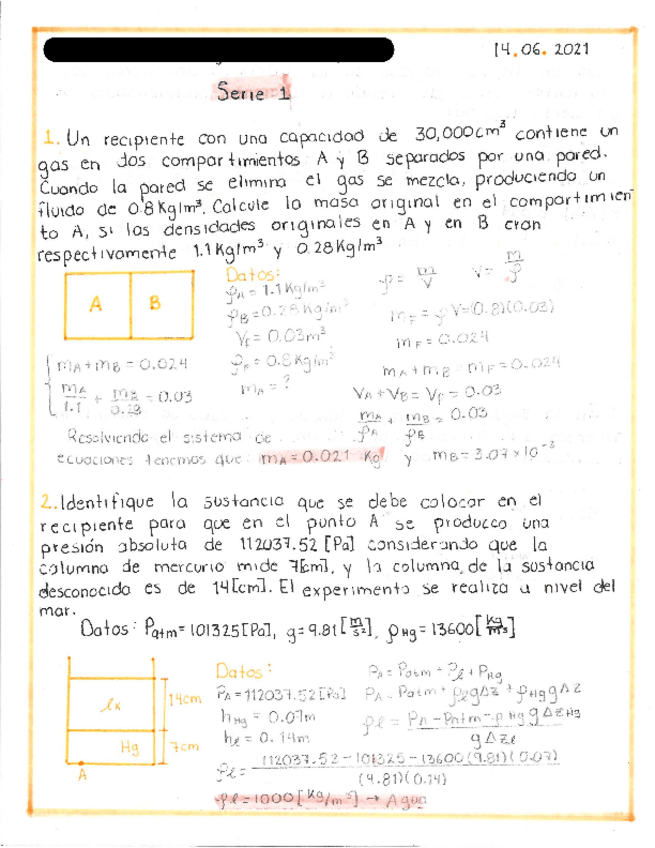 14.06.2021
Serie 1
1. Un recipiente con una capacidad de 30,000cm³ contiene un
gas en dos compartimientos A y B separados por una pared.
Cuando la pared se elimina el gas se mezcla, produciendo un
fluido de 0.8Kg/m³. Calcule la masa original en el compartimien
to A, si las densidades originales en A y en B eran
respectivamente 1.1Kg/m³ y 0.28Kg/m³
A B
Datos:
ρA = 1.1Kg/m³
ρB = 0.28Kg/m³
VF = 0.03m³
ρF = 0.8Kg/m³
mA = ?
ρ = m/V V = m/ρ
mF = ρV=(0.8)(0.03)
mF = 0.024
mA + mB = mF = 0.024
VA + VB = VF = 0.03
mA/ρA + mB/ρB = 0.03
mA + mB = 0.024
mA/1.1 + mB/0.28 = 0.03
Resolviendo el sistema de
ecuaciones tenemos que: mA = 0.021 Kg y mB = 3.07×10⁻³
2. Identifique la sustancia que se debe colocar en el
recipiente para que en el punto A se produzca una
presión absoluta de 112037.52 [Pa] considerando que la
columna de mercurio mide 7[cm], y la columna de la sustancia
desconocida es de 14[cm]. El experimento se realiza a nivel del
mar.
Datos: Patm = 101325[Pa], g = 9.81[m/s²], ρHg = 13600[kg/m³]
14cm
Hg 7cm
A
Datos:
PA = 112037.52[Pa]
hHg = 0.07m
hℓ = 0.14m
PA = Patm + Pℓ + PHg
PA = Patm + ρℓgΔZ + ρHggΔZ
ρℓ = PA - Patm - ρHg gΔZHg / gΔZℓ
ρℓ = 112037.52 - 101325 - 13600(9.81)(0.07) / (9.81)(0.14)
ρℓ = 1000[Kg/m³] → Agua